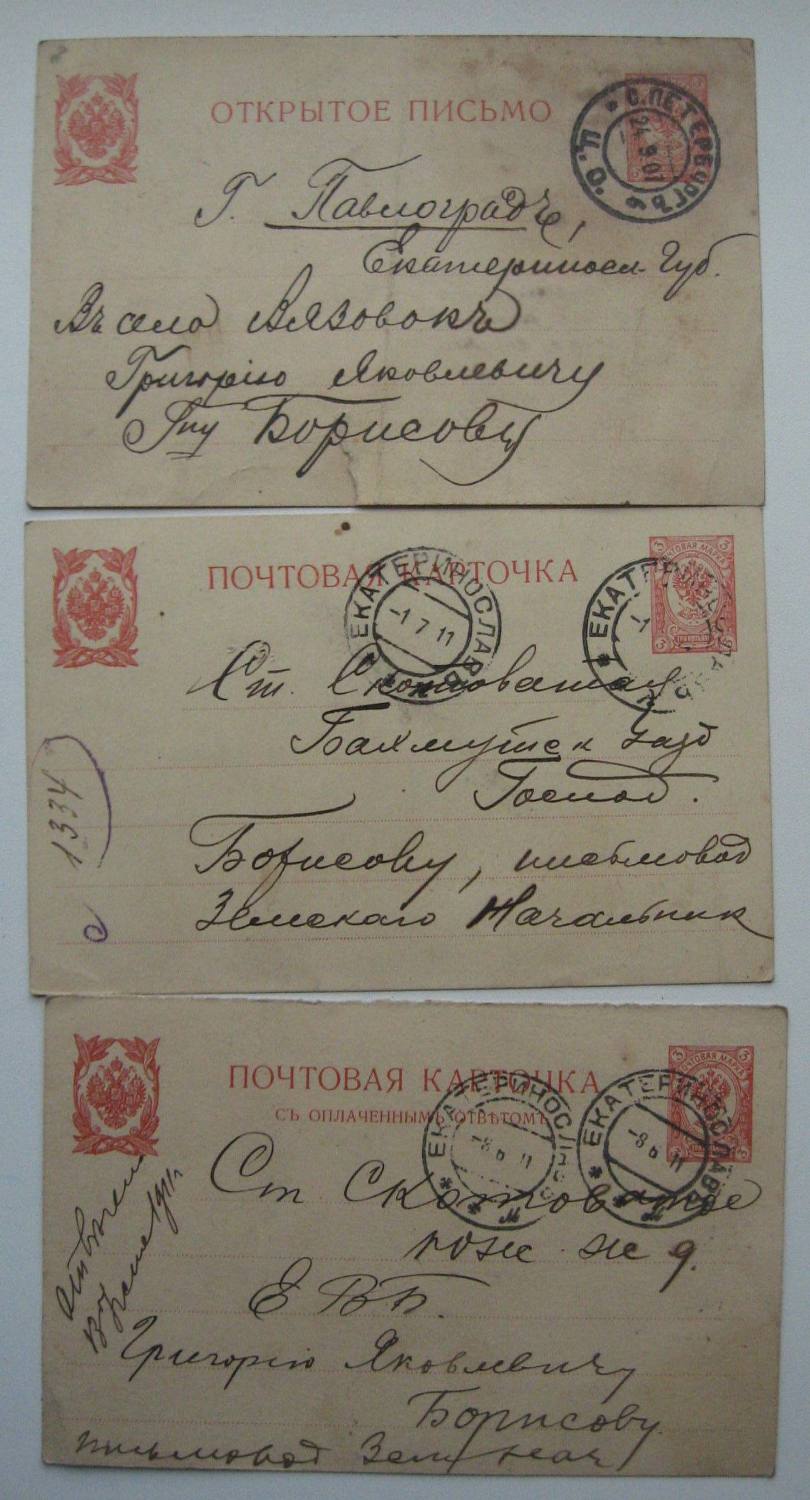 ОТКРЫТОЕ ПИСЬМО
С.ПЕТЕРБУРГЪ 24 9 07
Г. Павлоградъ,
Екатериносл. Губ.
Въ село Вязовокъ
Григорію Яковлевичу
Гну Борисову
ПОЧТОВАЯ КАРТОЧКА
ЕКАТЕРИНОСЛАВЪ -1 7 11
ЕКАТЕРИНОСЛАВЪ
3 ПОЧТОВАЯ МАРКА 3
3 ТРИ КОП. 3
Ст. Скотоватая
Бахмутск уезд
Господ.
Борисову, письмовод
Земскаго Начальник
1334
ПОЧТОВАЯ КАРТОЧКА
СЪ ОПЛАЧЕННЫМЪ ОТВѢТОМЪ
ЕКАТЕРИНОСЛАВЪ -8 6 11 м
ЕКАТЕРИНОСЛАВЪ -8 6 11 м
3 ПОЧТОВАЯ МАРКА 3
Ст Скотоватое
ЕВБ.
Григорію Яковлевичу
Борисову
письмовод Зем нач